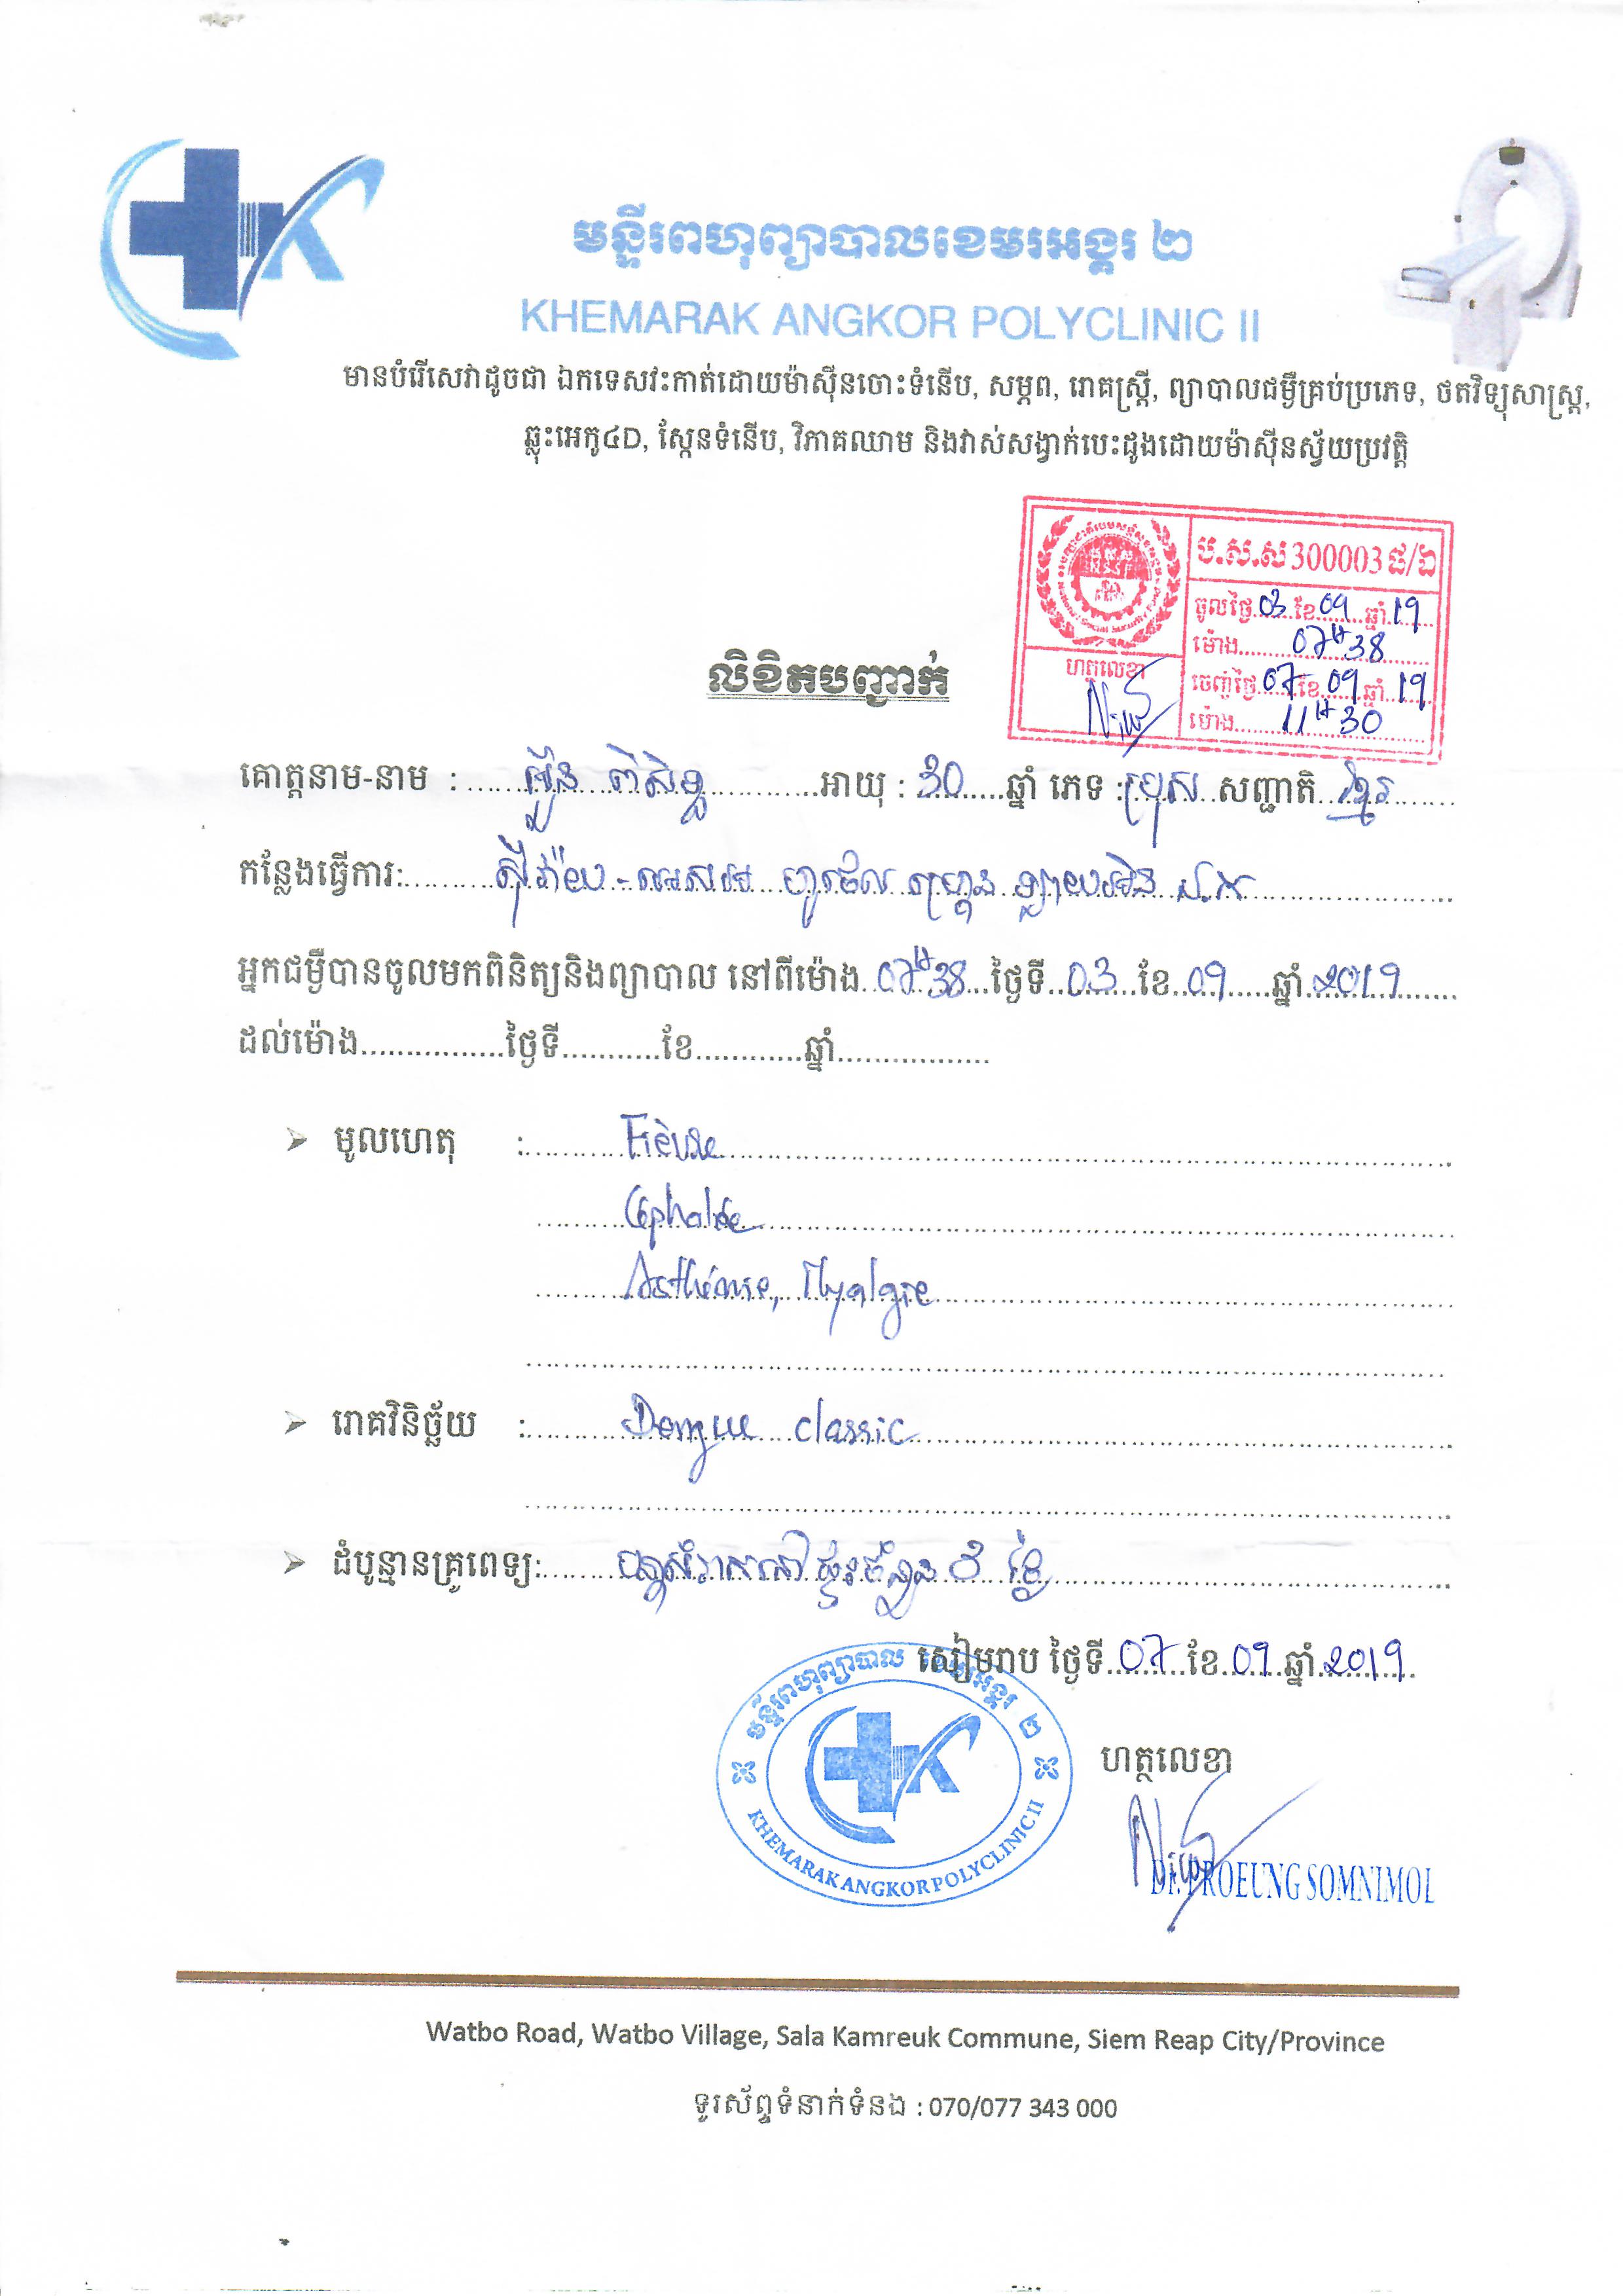 មន្ទីរពហុព្យាបាលខេមរអង្គរ ២
KHEMARAK ANGKOR POLYCLINIC II
មានបំរើសេវាដូចជា ឯកទេសវះកាត់ដោយម៉ាស៊ីនចោះទំនើប, សម្ភព, រោគស្ត្រី, ព្យាបាលជម្ងឺគ្រប់ប្រភេទ, ថតវិទ្យុសាស្ត្រ,
ឆ្លុះអេកូ៤D, ស្កែនទំនើប, វិភាគឈាម និងវាស់សង្វាក់បេះដូងដោយម៉ាស៊ីនស្វ័យប្រវត្តិ
ប.ស.ស 300003 ផ/ឯ
ចូលថ្ងៃ 03 ខែ 09 ឆ្នាំ 19
ម៉ោង 07H38
ហត្ថលេខា
ចេញថ្ងៃ 07 ខែ 09 ឆ្នាំ 19
ម៉ោង 11H30
លិខិតបញ្ជាក់
គោត្តនាម-នាម : ពិសិដ្ឋ អាយុ : 30 ឆ្នាំ ភេទ : ប្រុស សញ្ជាតិ ខ្មែរ
កន្លែងធ្វើការ:
អ្នកជម្ងឺបានចូលមកពិនិត្យនិងព្យាបាល នៅពីម៉ោង 07H38 ថ្ងៃទី 03 ខែ 09 ឆ្នាំ 2019
ដល់ម៉ោង ថ្ងៃទី ខែ ឆ្នាំ
មូលហេតុ : Fièvre
Céphalée
Asthénie, Myalgie
រោគវិនិច្ឆ័យ : Dengue classic
ដំបូន្មានគ្រូពេទ្យ: ថ្ងៃ
សៀមរាប ថ្ងៃទី 07 ខែ 09 ឆ្នាំ 2019
មន្ទីរពហុព្យាបាល ខេមរអង្គរ ២
KHEMARAK ANGKOR POLYCLINIC II
ហត្ថលេខា
Dr. PROEUNG SOMNIMOL
Watbo Road, Watbo Village, Sala Kamreuk Commune, Siem Reap City/Province
ទូរស័ព្ទទំនាក់ទំនង : 070/077 343 000